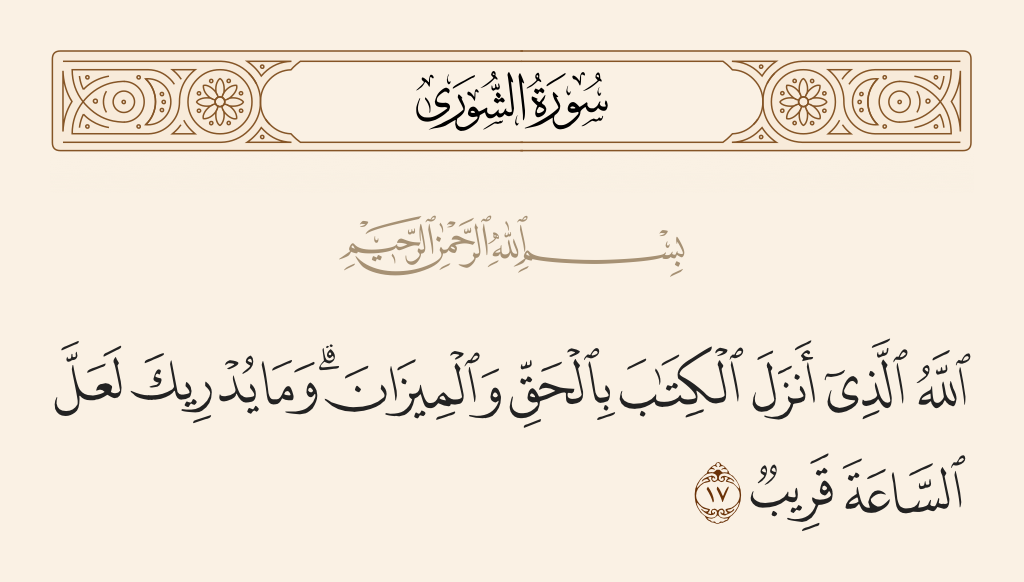 سُورَةُ الشُّورَىٰ
بِسْمِ ٱللَّهِ ٱلرَّحْمَٰنِ ٱلرَّحِيمِ
ٱللَّهُ ٱلَّذِىٓ أَنزَلَ ٱلْكِتَٰبَ بِٱلْحَقِّ وَٱلْمِيزَانَ ۗ وَمَا يُدْرِيكَ لَعَلَّ
ٱلسَّاعَةَ قَرِيبٌ ١٧